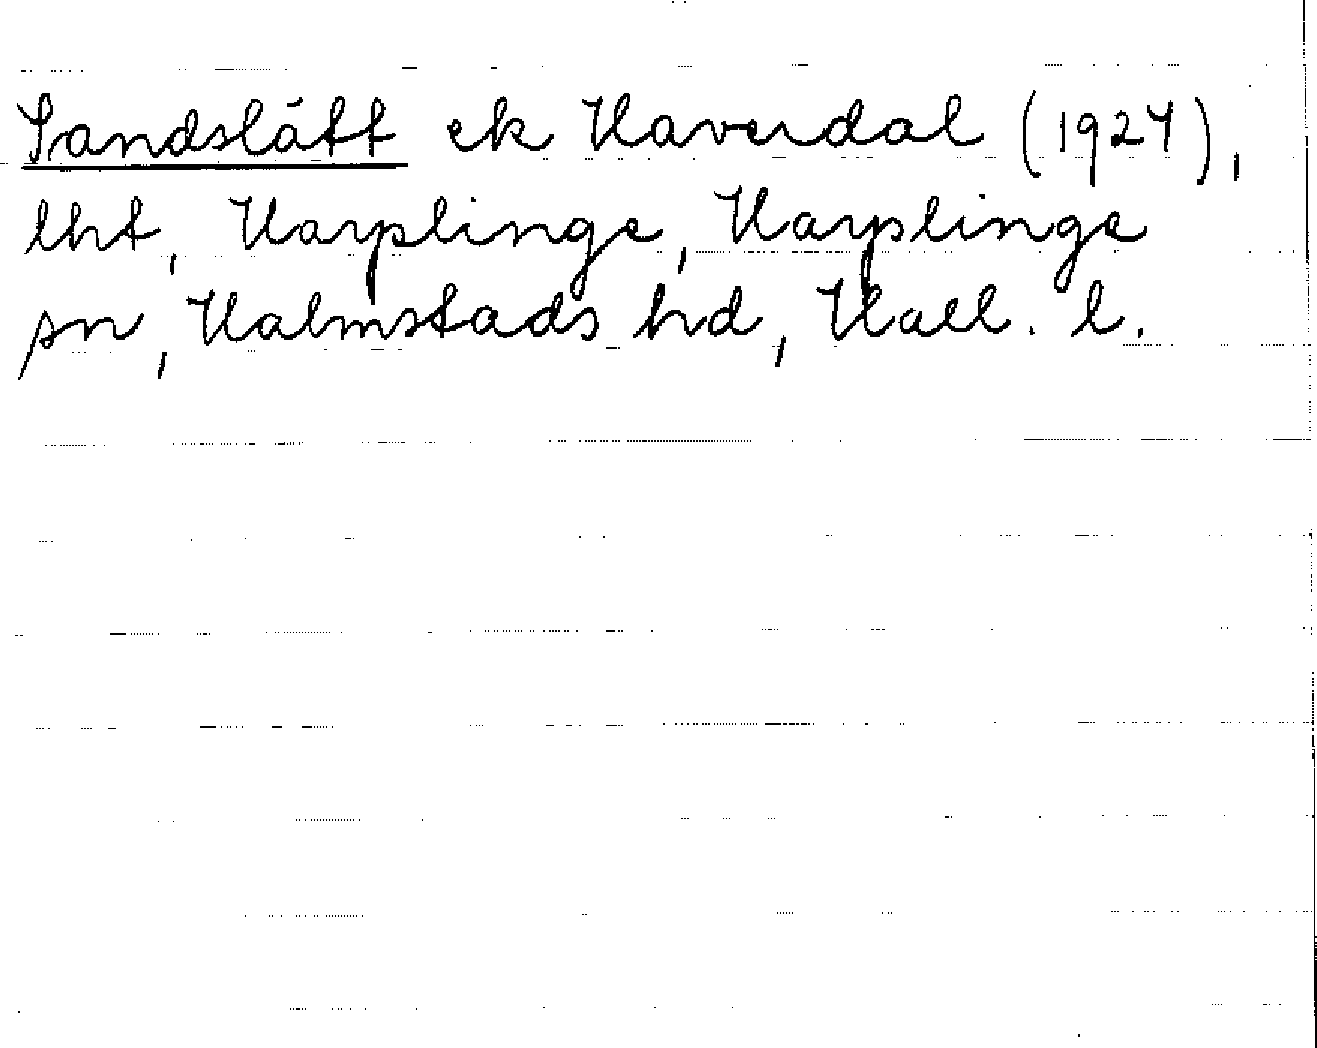 Sandslätt ek Haverdal (1924),
lht, Harplinge, Harplinge
sn, Halmstads hd, Hall. l.